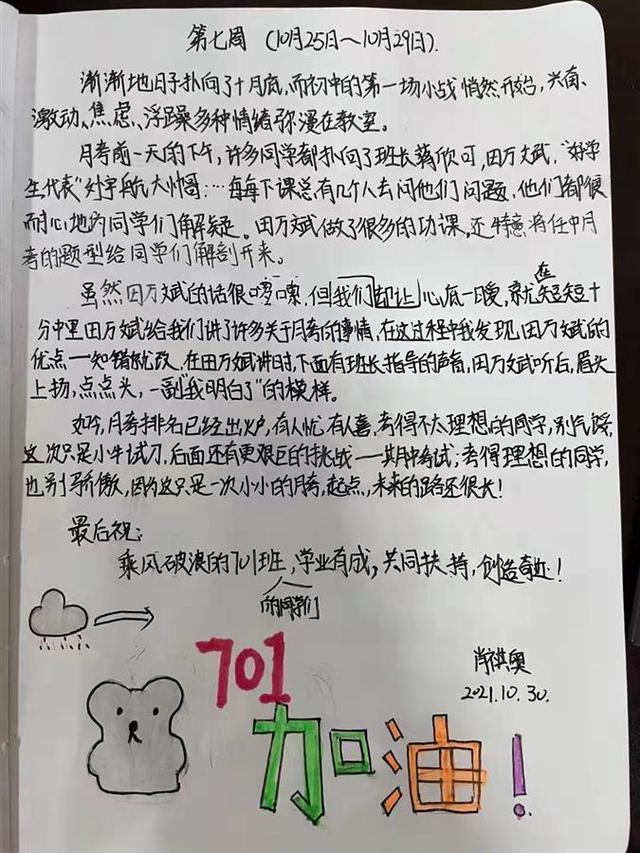 第七周 (10月25日~10月29日).
渐渐地日子扑向了十月底,而初中的第一场小战悄然开始,兴奋、
激动、焦虑、浮躁多种情绪弥漫在教室。
月考前一天的下午,许多同学都扑向了班长蒋欣可,田万斌,"好学
生代表"刘宇航大帅哥…每每下课总有几个人去问他们问题,他们都很
耐心地为同学们解疑。田万斌做了很多的功课,还特意将往年月
考的题型给同学们解剖开来。
虽然田万斌的话很啰嗦,但我们都让心底一暖,就在短短十
分中里田万斌给我们讲了许多关于月考的事情,在这过程中我发现田万斌的
优点—知错就改,在田万斌讲时,下面有班长指导的声音,田万斌听后,眉头
上扬,点点头,一副"我明白了"的模样。
如今,月考排名已经出炉,有人忧有人喜,考得不太理想的同学,别气馁,
这次只是小牛试刀,后面还有更艰巨的挑战—期中考试;考得理想的同学,
也别骄傲,因为这只是一次小小的月考,起点,未来的路还很长!
最后祝:
乘风破浪的701班的同学们,学业有成,共同扶持,创造奇迹!
肖祺奥
2021.10.30.
701
加油!